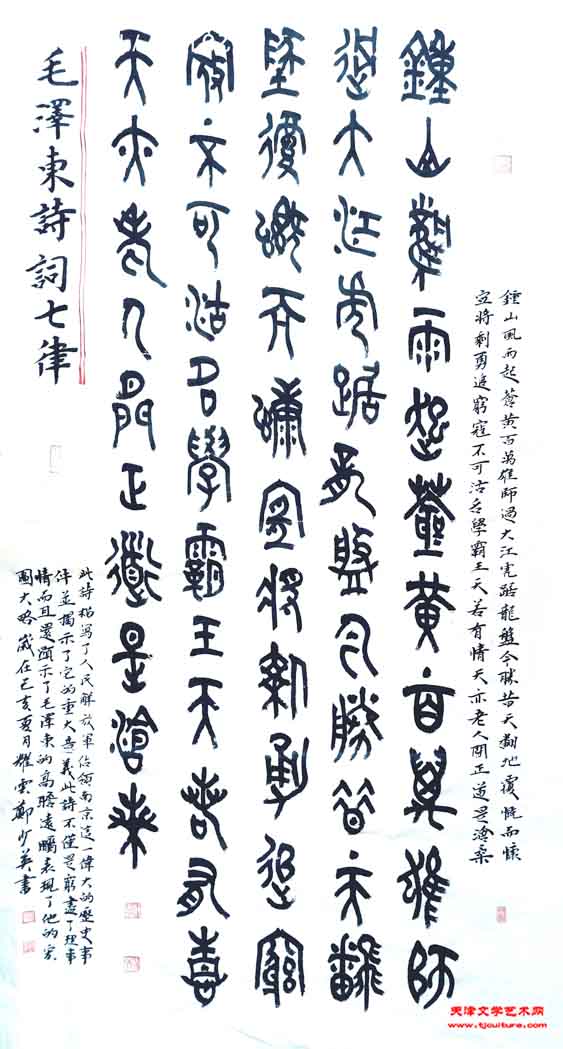 鍾山風雨起蒼黃百萬雄師過大江虎踞龍盤今勝昔天翻地覆慨而慷
宜將剩勇追窮寇不可沽名學霸王天若有情天亦老人間正道是滄桑
鍾山風雨起蒼黃百萬雄師
過大江虎踞龍盤今勝昔天翻
地覆慨而慷宜將剩勇追窮
寇不可沽名學霸王天若有情
天亦老人間正道是滄桑
毛澤東詩詞七律
此詩描寫了人民解放軍佔領南京這一偉大的歷史事
件並揭示了它的重大意義此詩不僅是窮盡了理事
情而且還顯示了毛澤東的高瞻遠矚表現了他的宏
圖大略歲在己亥夏月耀雲鄭少英書
天津文学艺术网
www.tjculture.com